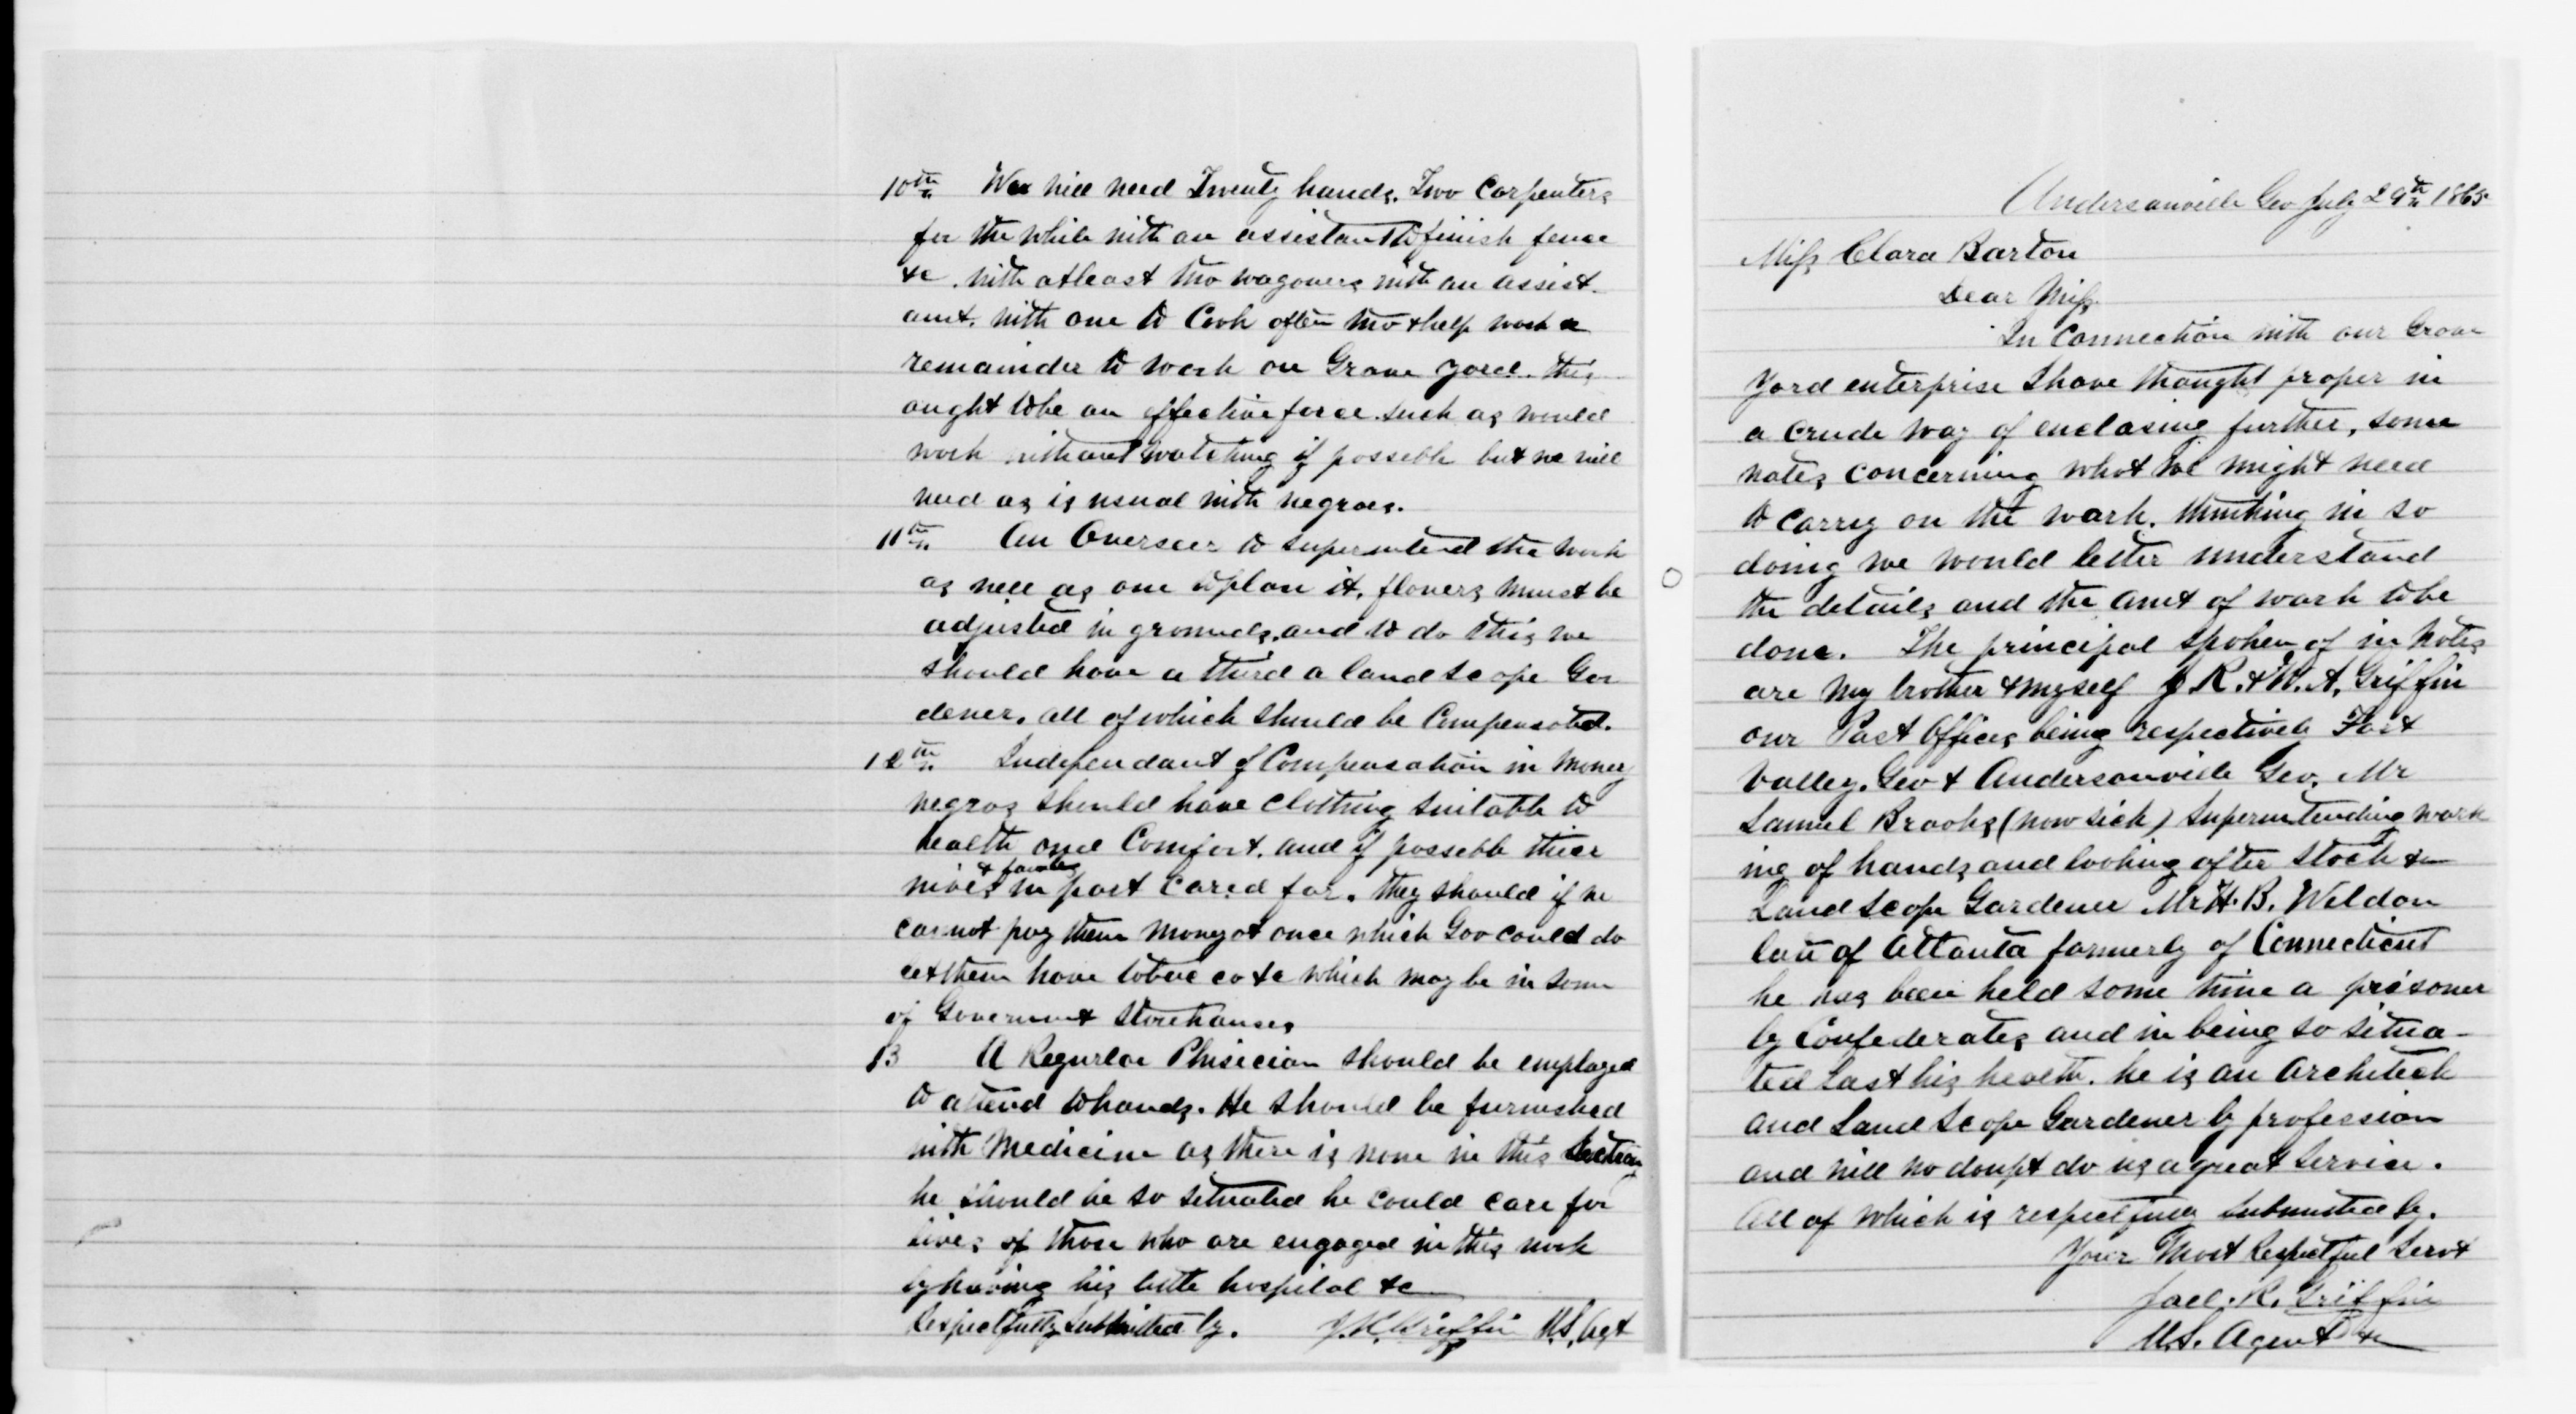 10th We will need Twenty hands. Two Carpenters
for the while with an assistant to finish fence
&c. with atleast two wagoners with an assist-
ant. with one to Cook often two & help wash &
remainder to work on Grave yard. this
ought to be an effective force such as would
work without watching if possible but we will
need as is usual with negroes.
11th An Overseer to superintend the work
as well as one to plan it. flowers must be
adjusted in grounds. and to do this we
should have a third a land scape Gar
dener. all of which should be Compensated.
12th Independant of Compensation in money
negros should have clothing suitable to
health and Comfort. and if possible thier
wives & families in part cared for. they should if we
cannot pay them money at once which Gov could do
let them have tobac co &c which may be in some
of Government Storehouses
13 A Regurlar Phisician should be employed
to attend to hands. He should be furnished
with Medicine as there is none in this Section
he should be so situated he could care for
lives of those who are engaged in this work
by having his little hospital &c
Respectfully Submitted by. J. R. Griffin U.S. Agt
Andersonville Geo July 29th 1865
Miss Clara Barton
Dear Miss.
In Connection with our Grave
Yard enterprise I have thought proper in
a crude way of enclosing further, some
notes concerning what we might need
to carry on the work. thinking in so
doing we would better understand
the details and the amt of work to be
done. The principal spoken of in Notes
are my brother & myself J. R. & W. A. Griffin
our Post Offices being respectively Fort
Valley. Geo & Andersonville Geo. Mr
Samuel Brooks (now sick) superintending work
ing of hands and looking after stock &c
Land scape Gardener Mr H. B. Weldon
late of Atlanta formerly of Connecticut
he has been held some time a prisoner
by Confederates and in being so situa-
ted Lost his health. he is an Architech
and Land Scape Gardener by profession
and will no doupt do us a great Service.
All of which is respectfully submitted by.
Your Most Respectful Servt
Joel. R. Griffin
U.S. Agent &c